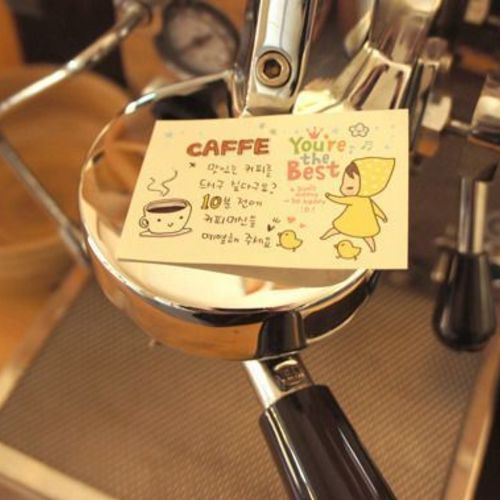 CAFFE
맛있는 커피를
드시구 싶다구요?
10분 전에
커피머신을
예열해 주세요
You're
the
Best